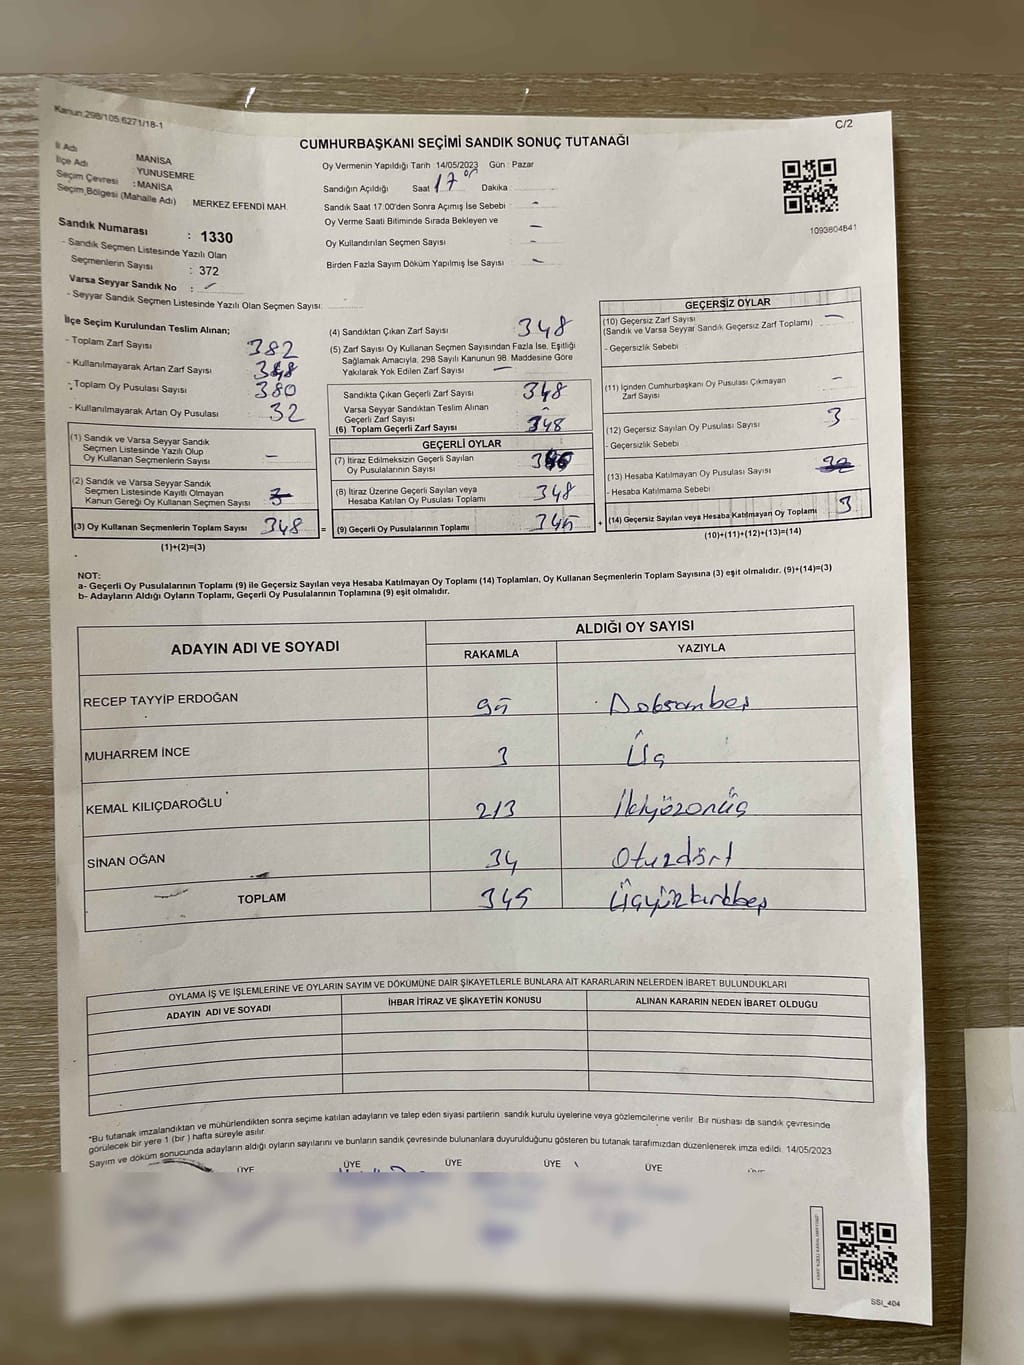 Kanun:298/105,6271/18-1
C/2
CUMHURBAŞKANI SEÇİMİ SANDIK SONUÇ TUTANAĞI
İl Adı : MANİSA
İlçe Adı : YUNUSEMRE
Seçim Çevresi : MANİSA
Seçim Bölgesi (Mahalle Adı) MERKEZ EFENDİ MAH.
Sandık Numarası : 1330
- Sandık Seçmen Listesinde Yazılı Olan
Seçmenlerin Sayısı : 372
Varsa Seyyar Sandık No :
- Seyyar Sandık Seçmen Listesinde Yazılı Olan Seçmen Sayısı:
Oy Vermenin Yapıldığı Tarih 14/05/2023 Gün : Pazar
Sandığın Açıldığı Saat 17 Dakika
Sandık Saat 17.00'den Sonra Açımış İse Sebebi -
Oy Verme Saati Bitiminde Sırada Bekleyen ve -
Oy Kullandırılan Seçmen Sayısı -
Birden Fazla Sayım Döküm Yapılmış İse Sayısı -
1093804841
İlçe Seçim Kurulundan Teslim Alınan;
- Toplam Zarf Sayısı 382
- Kullanılmayarak Artan Zarf Sayısı
- Toplam Oy Pusulası Sayısı 380
- Kullanılmayarak Artan Oy Pusulası 32
(1) Sandık ve Varsa Seyyar Sandık
Seçmen Listesinde Yazılı Olup
Oy Kullanan Seçmenlerin Sayısı -
(2) Sandık ve Varsa Seyyar Sandık
Seçmen Listesinde Kayıtlı Olmayan
Kanun Gereği Oy Kullanan Seçmen Sayısı
(3) Oy Kullanan Seçmenlerin Toplam Sayısı 348 =
(1)+(2)=(3)
(4) Sandıktan Çıkan Zarf Sayısı 348
(5) Zarf Sayısı Oy Kullanan Seçmen Sayısından Fazla İse, Eşitliği
Sağlamak Amacıyla, 298 Sayılı Kanunun 98. Maddesine Göre
Yakılarak Yok Edilen Zarf Sayısı -
Sandıkta Çıkan Geçerli Zarf Sayısı 348
Varsa Seyyar Sandıktan Teslim Alınan
Geçerli Zarf Sayısı -
(6) Toplam Geçerli Zarf Sayısı 348
GEÇERLİ OYLAR
(7) İtiraz Edilmeksizin Geçerli Sayılan
Oy Pusulalarının Sayısı
(8) İtiraz Üzerine Geçerli Sayılan veya
Hesaba Katılan Oy Pusulası Toplamı 348
(9) Geçerli Oy Pusulalarının Toplamı 345 +
GEÇERSİZ OYLAR
(10) Geçersiz Zarf Sayısı -
(Sandık ve Varsa Seyyar Sandık Geçersiz Zarf Toplamı)
- Geçersizlik Sebebi
(11) İçinden Cumhurbaşkanı Oy Pusulası Çıkmayan -
Zarf Sayısı
(12) Geçersiz Sayılan Oy Pusulası Sayısı 3
- Geçersizlik Sebebi
(13) Hesaba Katılmayan Oy Pusulası Sayısı
- Hesaba Katılmama Sebebi
(14) Geçersiz Sayılan veya Hesaba Katılmayan Oy Toplamı 3
(10)+(11)+(12)+(13)=(14)
NOT:
a- Geçerli Oy Pusulalarının Toplamı (9) ile Geçersiz Sayılan veya Hesaba Katılmayan Oy Toplamı (14) Toplamları, Oy Kullanan Seçmenlerin Toplam Sayısına (3) eşit olmalıdır. (9)+(14)=(3)
b- Adayların Aldığı Oyların Toplamı, Geçerli Oy Pusulalarının Toplamına (9) eşit olmalıdır.
ADAYIN ADI VE SOYADI ALDIĞI OY SAYISI
RAKAMLA YAZIYLA
RECEP TAYYİP ERDOĞAN 95 Doksanbeş
MUHARREM İNCE 3 Üç
KEMAL KILIÇDAROĞLU 213 İkiyüzonüç
SİNAN OĞAN 34 Otuzdört
TOPLAM 345 Üçyüzkırkbeş
OYLAMA İŞ VE İŞLEMLERİNE VE OYLARIN SAYIM VE DÖKÜMÜNE DAİR ŞİKAYETLERLE BUNLARA AİT KARARLARIN NELERDEN İBARET BULUNDUKLARI
ADAYIN ADI VE SOYADI İHBAR İTİRAZ VE ŞİKAYETİN KONUSU ALINAN KARARIN NEDEN İBARET OLDUĞU
*Bu tutanak imzalandıktan ve mühürlendikten sonra seçime katılan adayların ve talep eden siyasi partilerin sandık kurulu üyelerine veya gözlemcilerine verilir. Bir nüshası da sandık çevresinde
görülecek bir yere 1 (bir) hafta süreyle asılır.
Sayım ve döküm sonucunda adayların aldığı oyların sayılarını ve bunların sandık çevresinde bulunanlara duyurulduğunu gösteren bu tutanak tarafımızdan düzenlenerek imza edildi. 14/05/2023
ÜYE ÜYE ÜYE ÜYE ÜYE
SSI_404